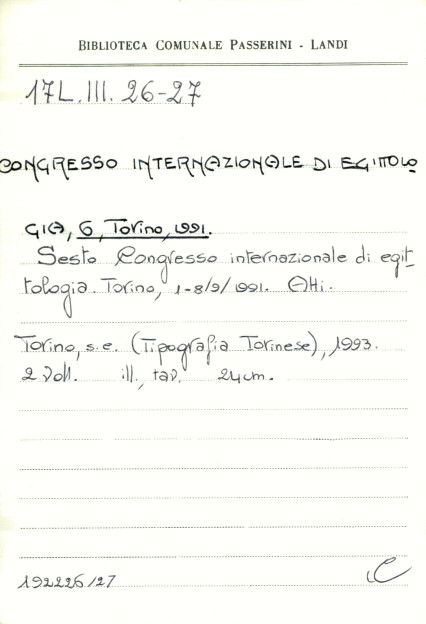 BIBLIOTECA COMUNALE PASSERINI - LANDI
17L.III. 26-27
CONGRESSO INTERNAZIONALE DI EGITTOLO
GIA, 6, Torino, 1991.
Sesto Congresso internazionale di egit-
tologia. Torino, 1-8/9/1991. Atti.
Torino, s.e. (Tipografia Torinese), 1993.
2 voll. ill., tav. 24cm.
192226/27